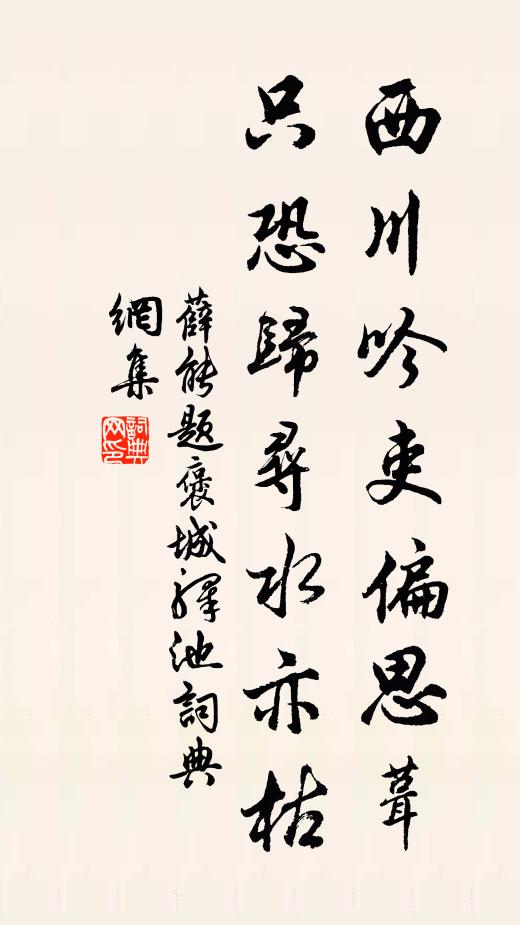 西川吟吏偏思葺
只恐歸尋水亦枯
薛能題褒城驛池詞典
網集
詞典
网印